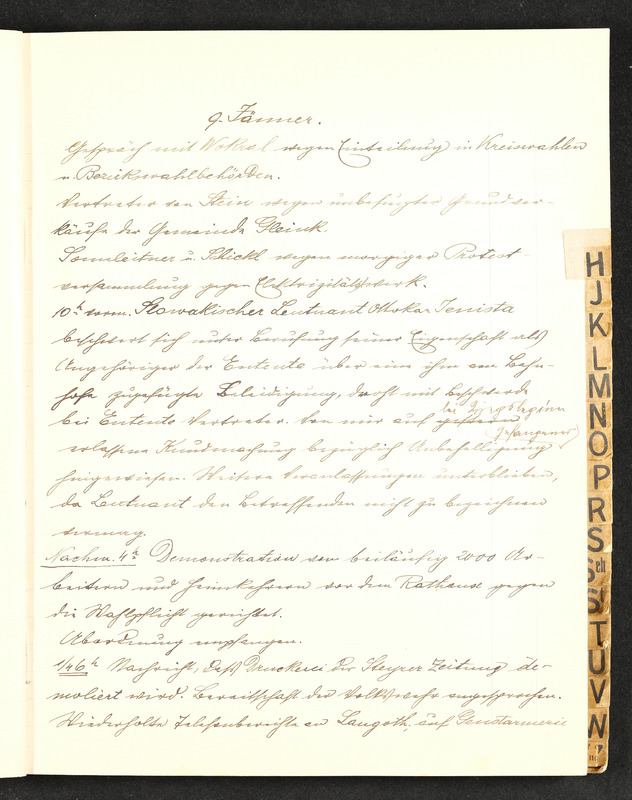 9. Jänner.
Gespräch mit Wokral wegen Einteilung in Kreiswahlen
u. Bezirkswahlbehörden.
Vertreter von Stein wegen unbefugter Grundver-
käufe der Gemeinde Gleink.
Sonnleitner u. Schickl wegen morgiger Protest-
versammlung gegen Elektrizitätswerk.
10h vorm. Slowakischer Leutnant Ottokar Jenista
beschwert sich unter Berufung seiner Eigenschaft als
Angehöriger der Entente über eine ihm am Bahn-
hofe zugefügte Beleidigung, droht mit Beschwerde
bei Entente Vertreter. Von mir auf gestern
bei
gefangener
erlassene Kundmachung bezüglich Unbehelligung
hingewiesen. Weitere Veranlassungen unterblieben,
da Leutnant den Betreffenden nicht zu bezeichnen
vermag.
Nachm. 4h Demonstration von beiläufig 2000 Ar-
beitern und Heimkehrern vor dem Rathaus gegen
die Wahlpflicht gerichtet.
Abordnung empfangen.
1/46h Nachricht, daß Druckerei der Steyrer Zeitung de-
moliert wird. Bereitschaft der Volkswehr angesprochen.
Wiederholte Telefonberichte an Langoth, auf Gendarmerie
H
J
K
L
M
N
O
P
R
S
Sch
St
T
U
V
W